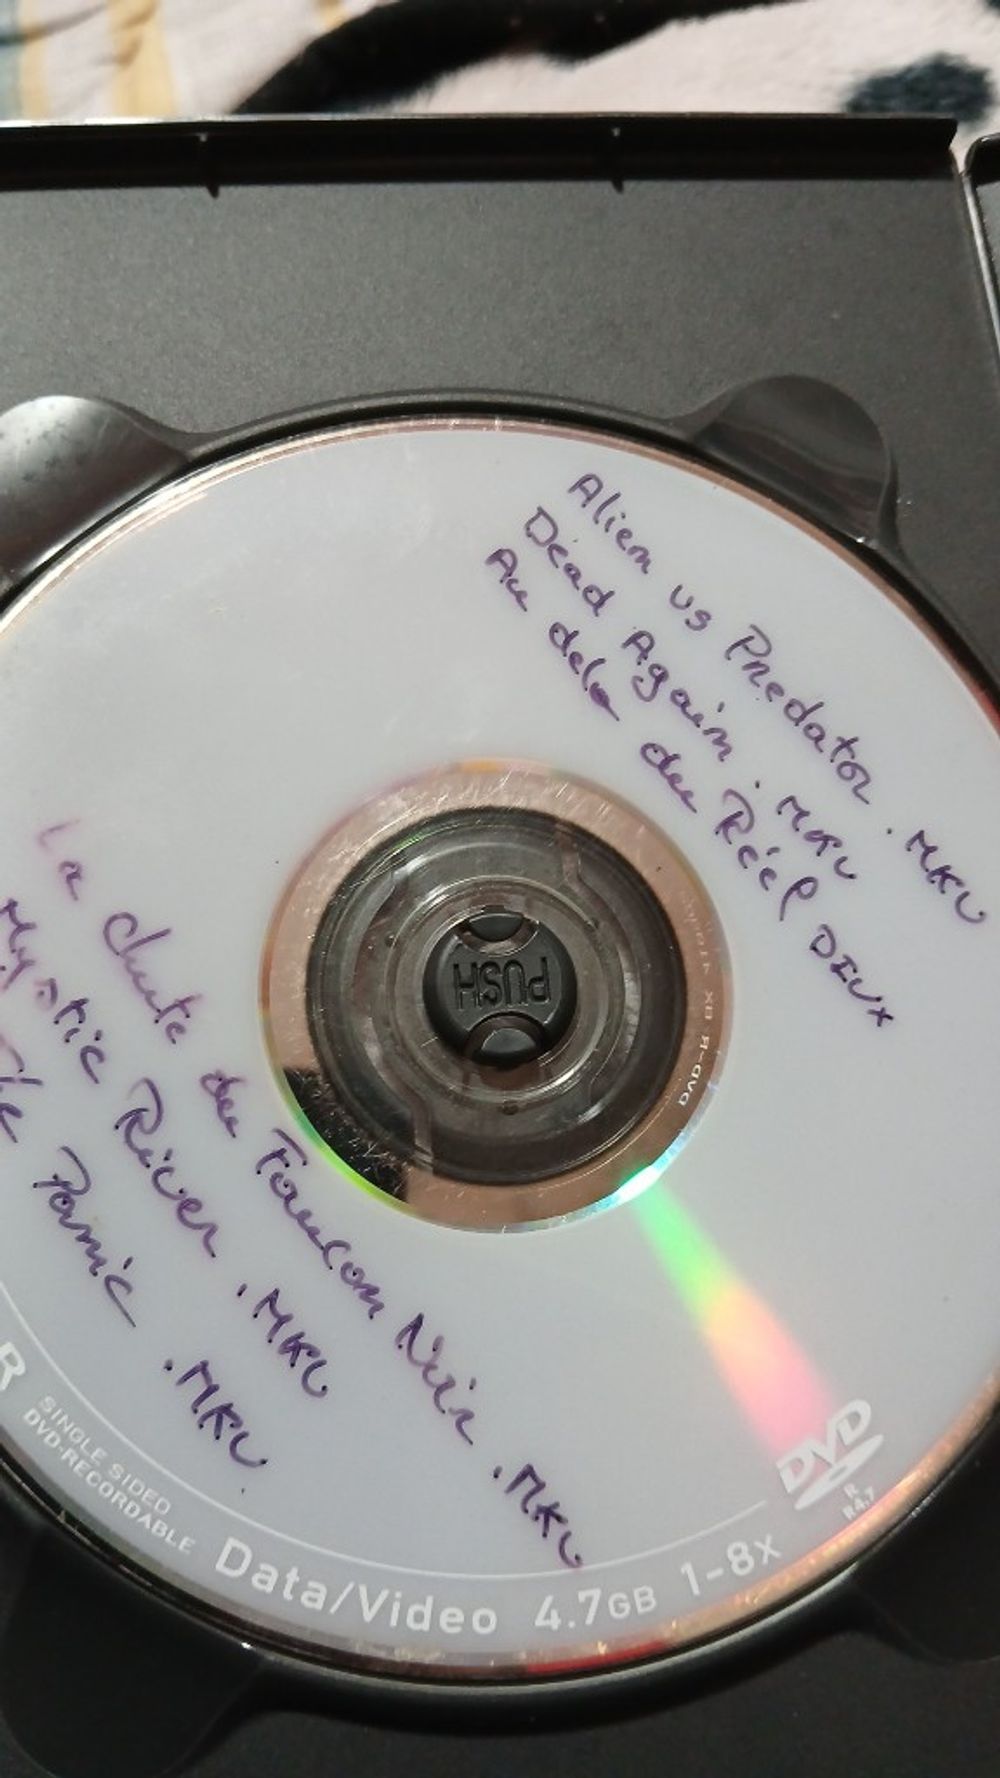 Alien vs Predator .MKV
Dead Again .MKV
Au dela du Réel DIVX
La chute du Faucon Noir .MKV
Mystic River .MKV
Panic .MKV
PUSH
DVD-R
R
SINGLE SIDED
DVD-RECORDABLE
Data/Video 4.7GB 1-8x
DVD
R
R4.7